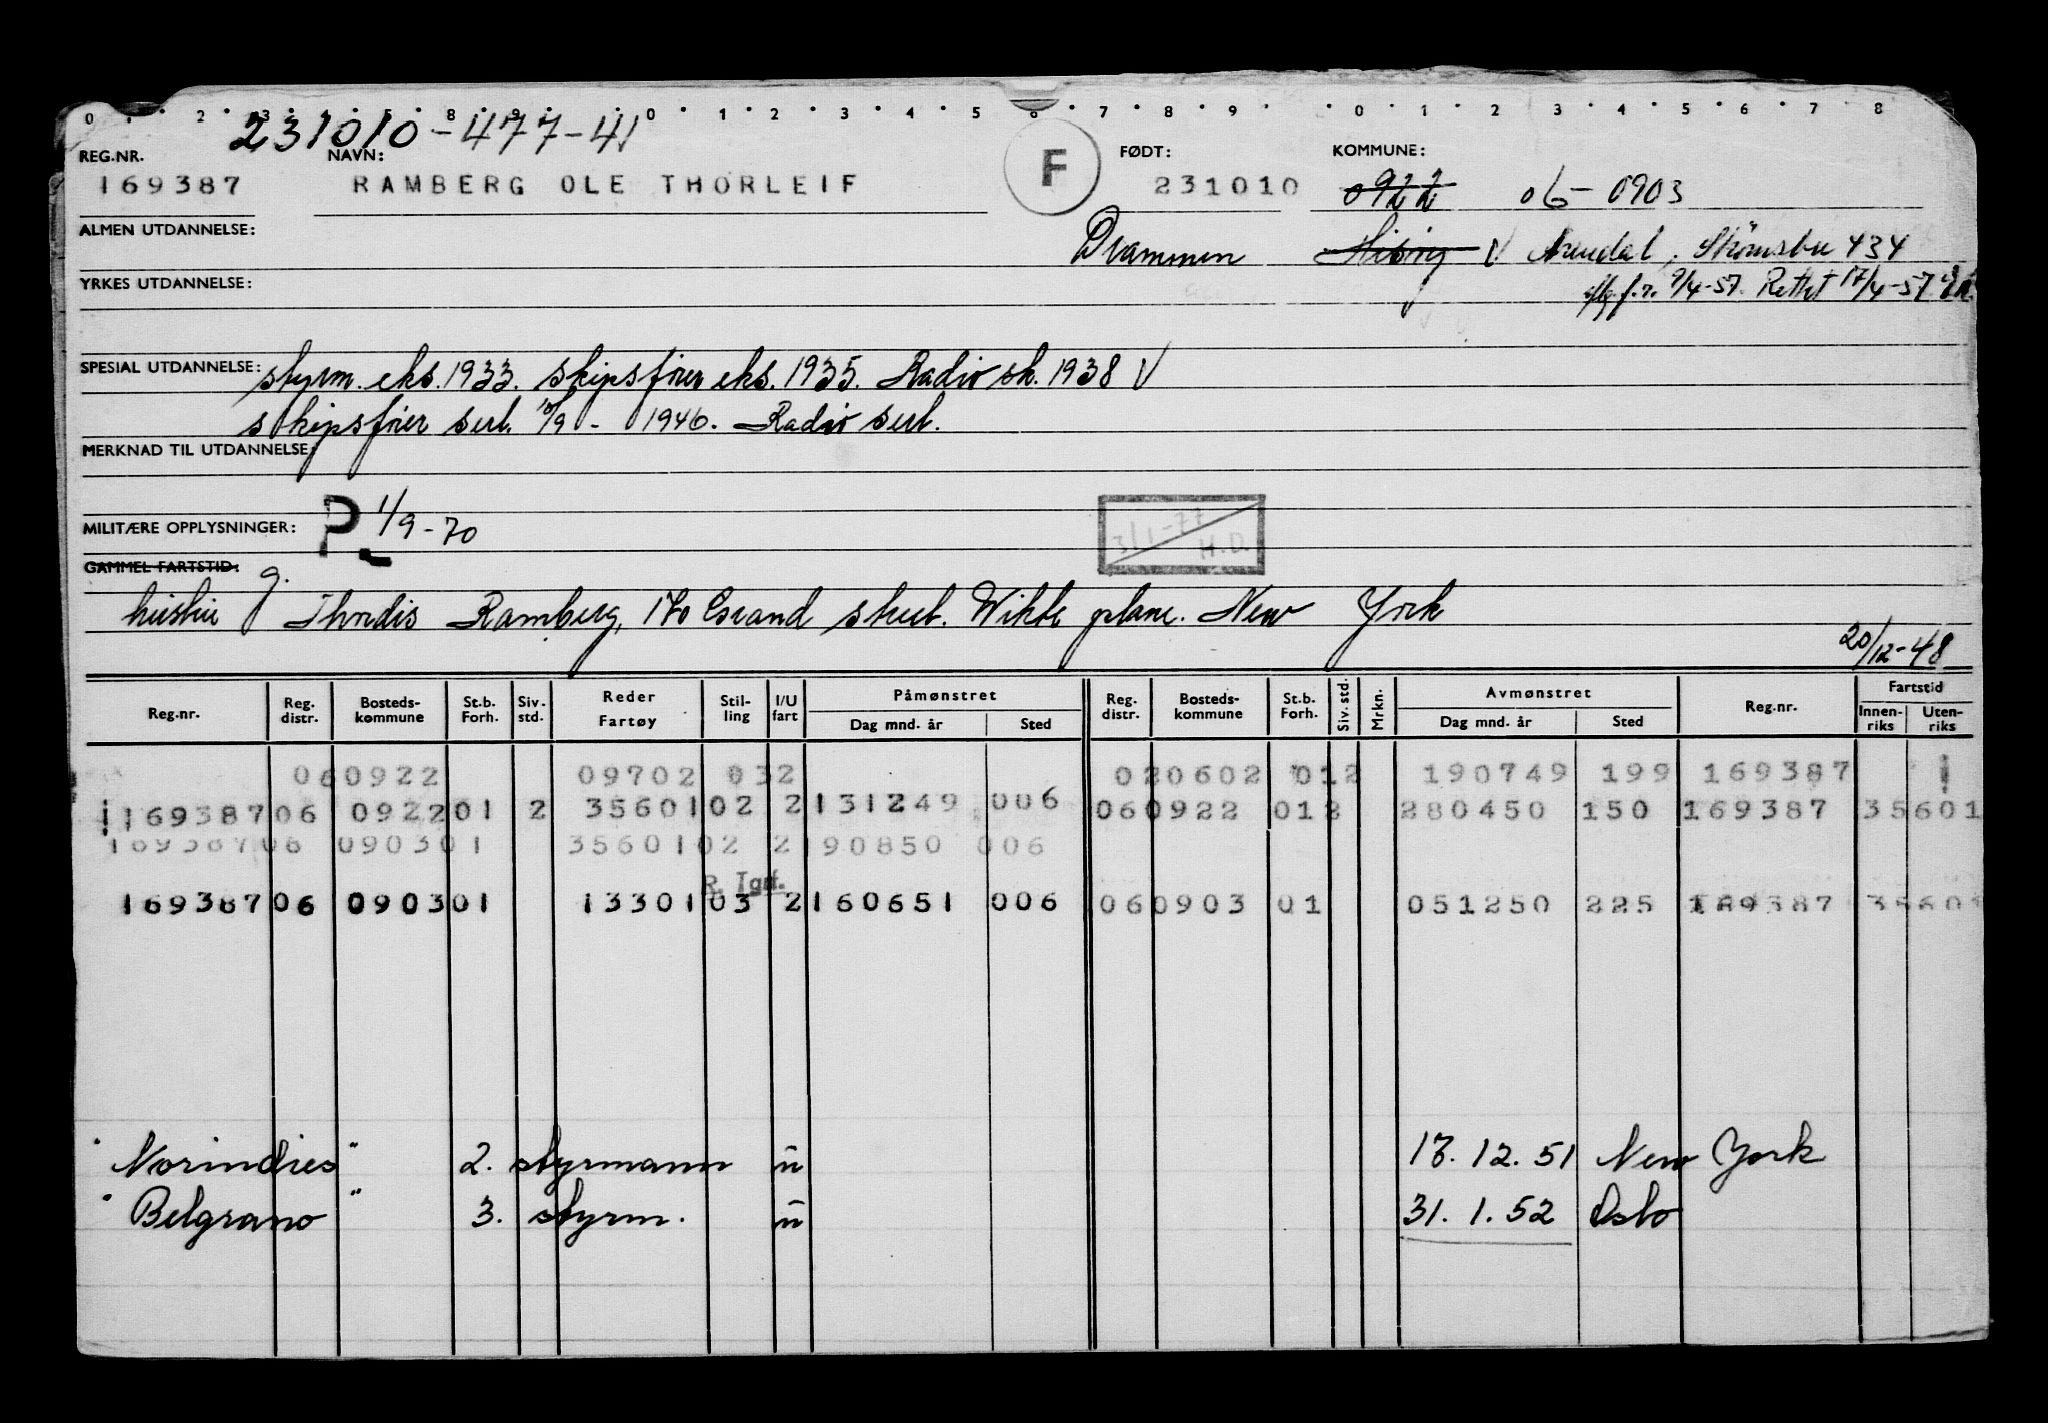 0 1 2 3 5 8 9 0 1 2 3 4 5 6 7 8 9 0 1 2 3 4 5 6 7 8
231010-477-41
REG.NR. NAVN: F FØDT: KOMMUNE:
169387 RAMBERG OLE THORLEIF 231010 0922 06-0903
ALMEN UTDANNELSE: Drammen Hisøy V Arendal, Strømsbu 434
YRKES UTDANNELSE: iflg. f.r. 9/4-57. Rettet 17/4-57
SPESIAL UTDANNELSE: styrm. eks. 1933. skipsfører eks. 1935. Radio sk. 1938 V
skipsfører sert. 10/9 - 1946. Radio sert.
MERKNAD TIL UTDANNELSE:
MILITÆRE OPPLYSNINGER: P 1/9-70 3/1-77 H.D.
GAMMEL FARTSTID: g.
hustru Thordis Ramberg, 170 Grand street. Wihte plane. New York
20/12-48
Reg.nr. Reg. distr. Bosteds- kommune St.b. Forh. Siv. std. Reder Fartøy Stil- ling I/U fart Påmønstret Dag mnd. år Sted Reg. distr. Bosteds- kommune St.b. Forh. Siv. std. Mrkn. Avmønstret Dag mnd. år Sted Reg.nr. Fartstid Innen- riks Uten- riks
060922 09702 032 020602 012 190749 199 169387
169387 06 0922 01 2 35601 02 2 131249 006 060922 012 280450 150 169387 35601
169387 06 0903 01 35601 02 2 190850 006
R. Tgrf.
169387 06 0903 01 13301 03 2 160651 006 060903 01 051250 225 169387 35601
"Norindies" 2. styrmann u 17.12.51 New York
"Belgrano" 3. styrm. u 31.1.52 Oslo